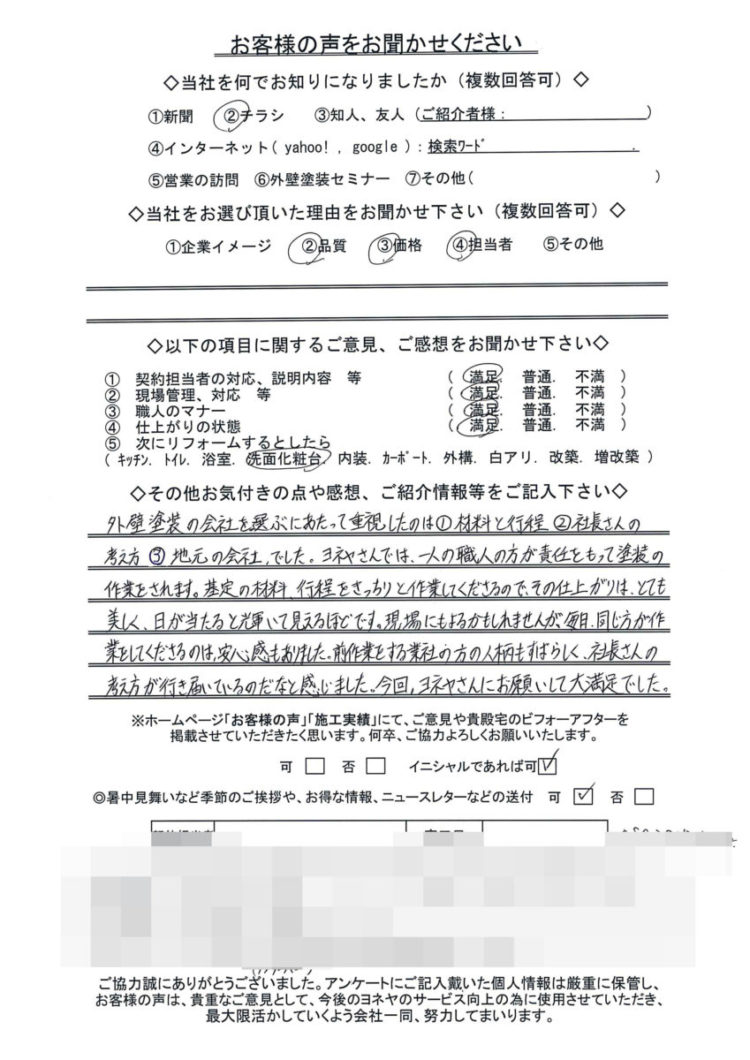 お客様の声をお聞かせください
◇当社を何でお知りになりましたか（複数回答可）◇
①新聞 ②チラシ ③知人、友人（ご紹介者様： ）
④インターネット( yahoo! , google )：検索ﾜｰﾄﾞ .
⑤営業の訪問 ⑥外壁塗装セミナー ⑦その他( )
◇当社をお選び頂いた理由をお聞かせ下さい（複数回答可）◇
①企業イメージ ②品質 ③価格 ④担当者 ⑤その他
◇以下の項目に関するご意見、ご感想をお聞かせ下さい◇
① 契約担当者の対応、説明内容 等 ( 満足. 普通. 不満 )
② 現場管理、対応 等 ( 満足. 普通. 不満 )
③ 職人のマナー ( 満足. 普通. 不満 )
④ 仕上がりの状態 ( 満足. 普通. 不満 )
⑤ 次にリフォームするとしたら
( ｷｯﾁﾝ. ﾄｲﾚ. 浴室. 洗面化粧台. 内装. ｶｰﾎﾟｰﾄ. 外構. 白アリ. 改築. 増改築 )
◇その他お気付きの点や感想、ご紹介情報等をご記入下さい◇
外壁塗装の会社を選ぶにあたって重視したのは①材料と行程 ②社長さんの
考え方 ③地元の会社、でした。ヨネヤさんでは、一人の職人の方が責任をもって塗装の
作業をされます。基定の材料、行程をきっちりと作業してくださるので、その仕上がりは、とても
美しく、日が当たると光輝いて見えるほどです。現場にもよるかもしれませんが、毎日、同じ方が作
業をしてくださるのは、安心感もありました。前作業をする業社の方の人柄もすばらしく、社長さんの
考え方が行き届いているのだなと感じました。今回、ヨネヤさんにお願いして大満足でした。
※ホームページ「お客様の声」「施工実績」にて、ご意見や貴殿宅のビフォーアフターを
掲載させていただきたく思います。何卒、ご協力よろしくお願いいたします。
可 □ 否 □ イニシャルであれば可☑
◎暑中見舞いなど季節のご挨拶や、お得な情報、ニュースレターなどの送付 可 ☑ 否 □
ご協力誠にありがとうございました。アンケートにご記入戴いた個人情報は厳重に保管し、
お客様の声は、貴重なご意見として、今後のヨネヤのサービス向上の為に使用させていただき、
最大限活かしていくよう会社一同、努力してまいります。